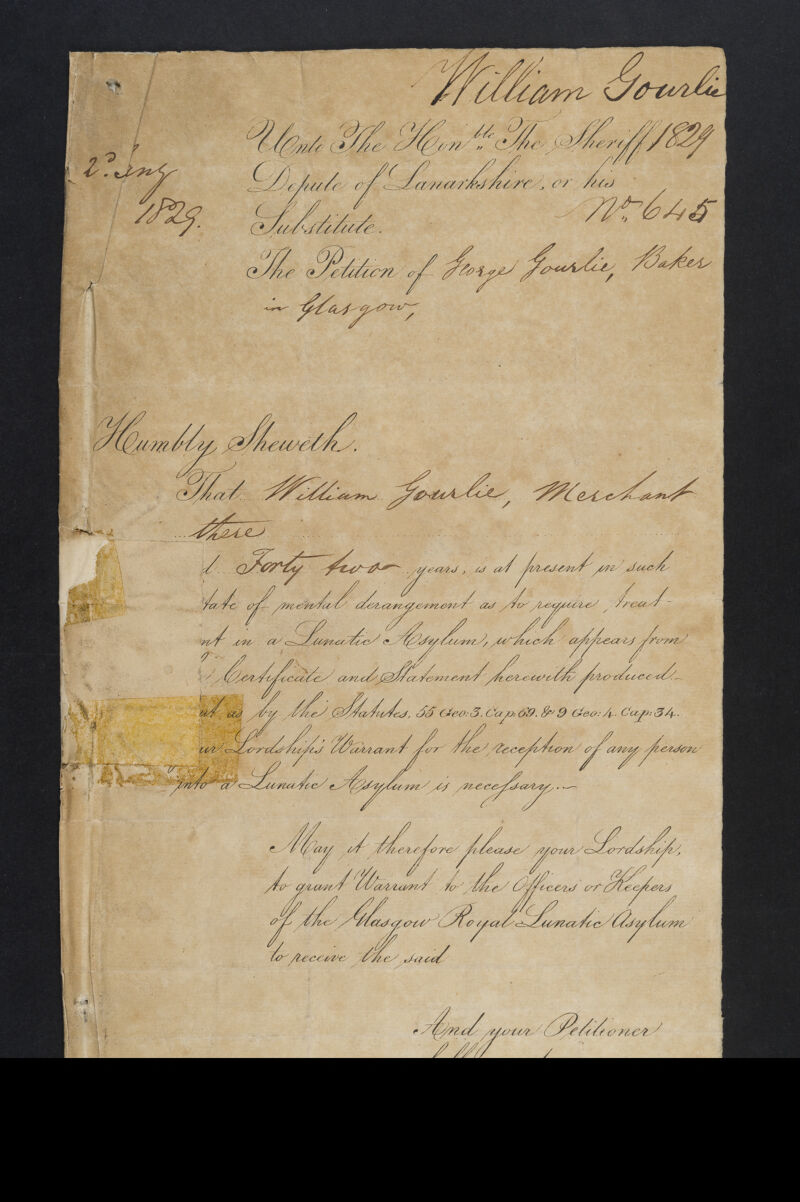 William Gourlie
Unto The Hon^ble. The Sheriff 1829
2^d. Jny
Depute of Lanarkshire, or his
1829.
Substitute.
No. 645
The Petition of George Gourlie, Baker
in Glasgow,
Humbly Sheweth.
That William Gourlie, Merchant
there
d Forty two years, is at present in such
tate of mental derangement as to require treat-
nt in a Lunatic Asylum, which appears from
Certificate and Statement herewith produced
ut as by the Statutes, 55 Geo: 3. Cap: 69. & 9 Geo: 4. Cap: 34.
ur Lordship's Warrant for the reception of any person
into a Lunatic Asylum is necessary.~
May it therefore please your Lordship,
to grant Warrant to the Officers or Keepers
of the Glasgow Royal Lunatic Asylum
to receive the said
And your Petitioner